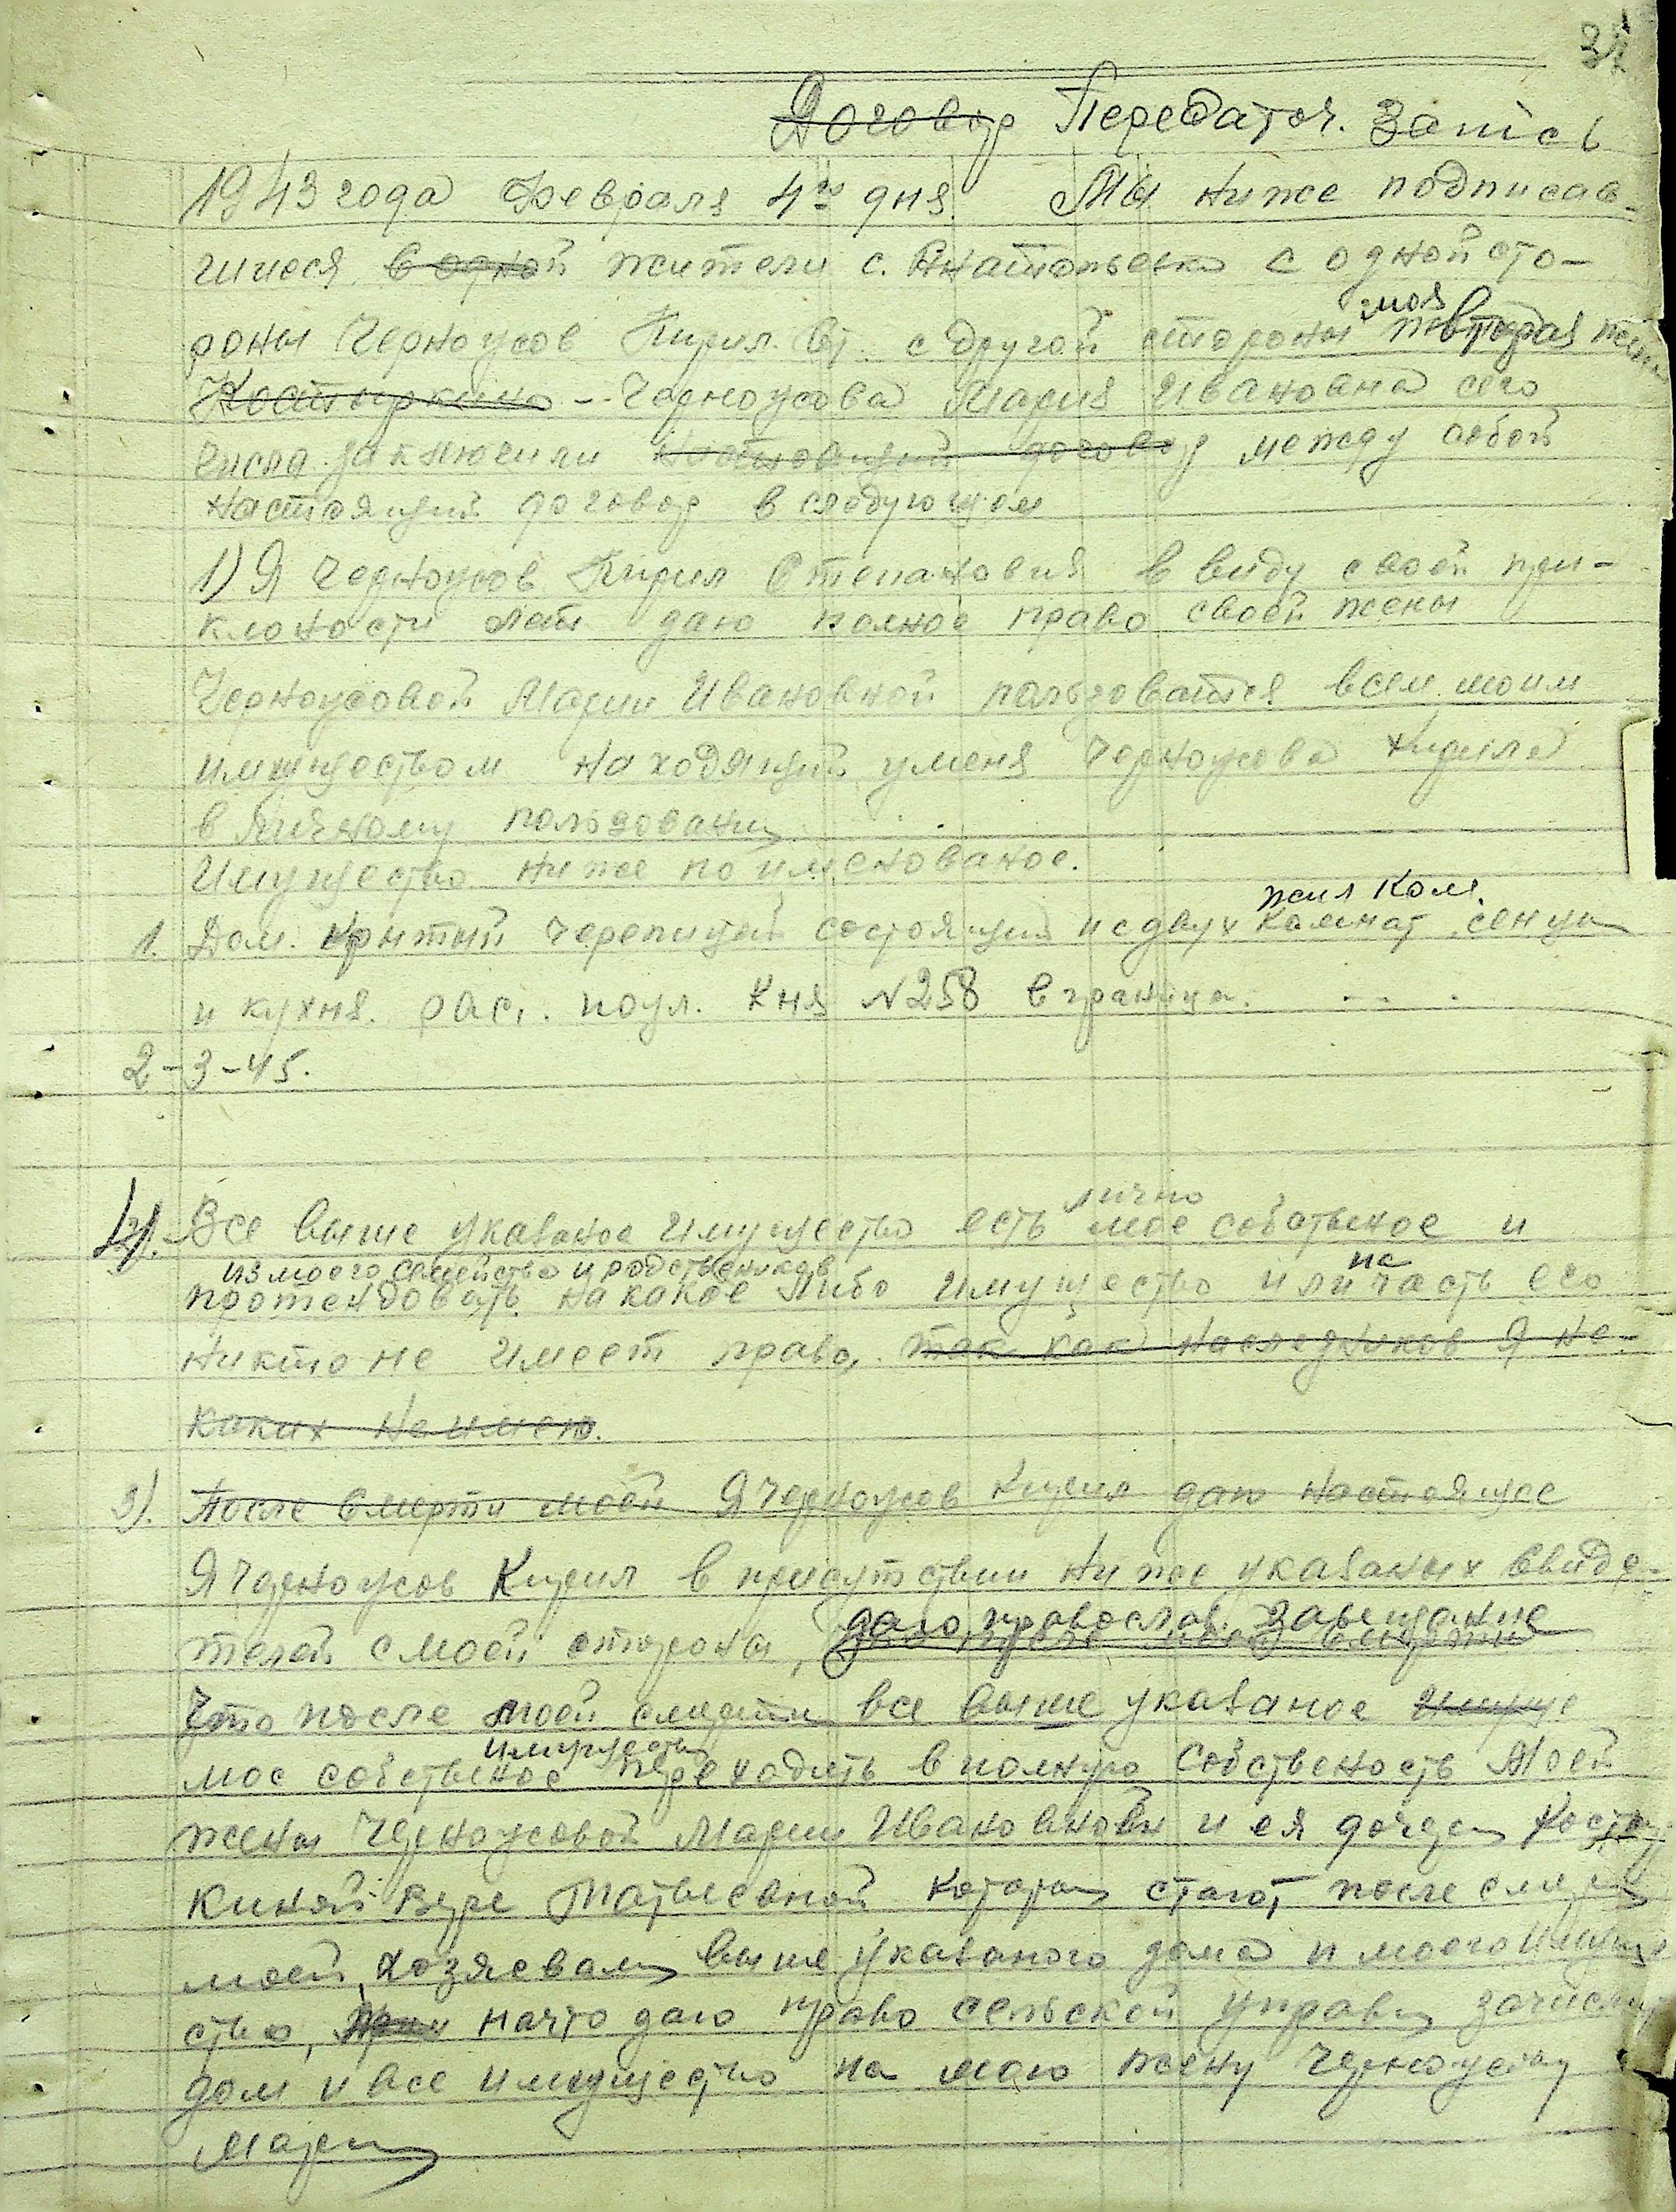 Договор Передаточ. Запись
1943 года Февраля 4го дня. Мы ниже подписав-
шиеся в одной жители с. с одной сто-
моя
роны Черноусов Кирил. Ст. с другой стороны вторая
Костыркина - Черноусова Мария Ивановна сего
числа заключили настоящий договор между собой
настоящий договор в следующем
1) Я Черноусов Кирил Степанович в виду своей при-
клоности лет даю полное право своей жены
Черноусовой Марии Ивановной пользоватся всем моим
имуществом находящий у меня Черноусова Кирила
в личному пользовани
Имущество ниже поименованое.
жил ком.
1. Дом. крытий черепицей состоящий и с двух комнат сенцы
и кухня. рас. по ул. Кня №258 в границе.
2-3-45.
лично
2). Все выше указаное имущество есть мое собственое и
из моего семейства и родствеников на
протендовать на какое либо имущество или часть его
никто не имеет права, так как наследников я не-
каких не имею.
3). После смерти моей Я Черноусов Кирил даю настоящее
Я Черноусов Кирил в присутствии ниже указаных свиде-
даю, православ. завещание
телей с моей стороны,
Что после моей смерти все выше указаное имуще
имущество
мое собственое переходить в полную собственость Моей
жены Черноусовой Марии Ивановной и ея дочери Косты
киной Вере Матвеевной которы стают после смерты
моей, хозяевамы выше указаного дома и моего имуще
ства, на что даю право сельской управы зачислить
дом и все имущество на мою жену Черноусову
Марию